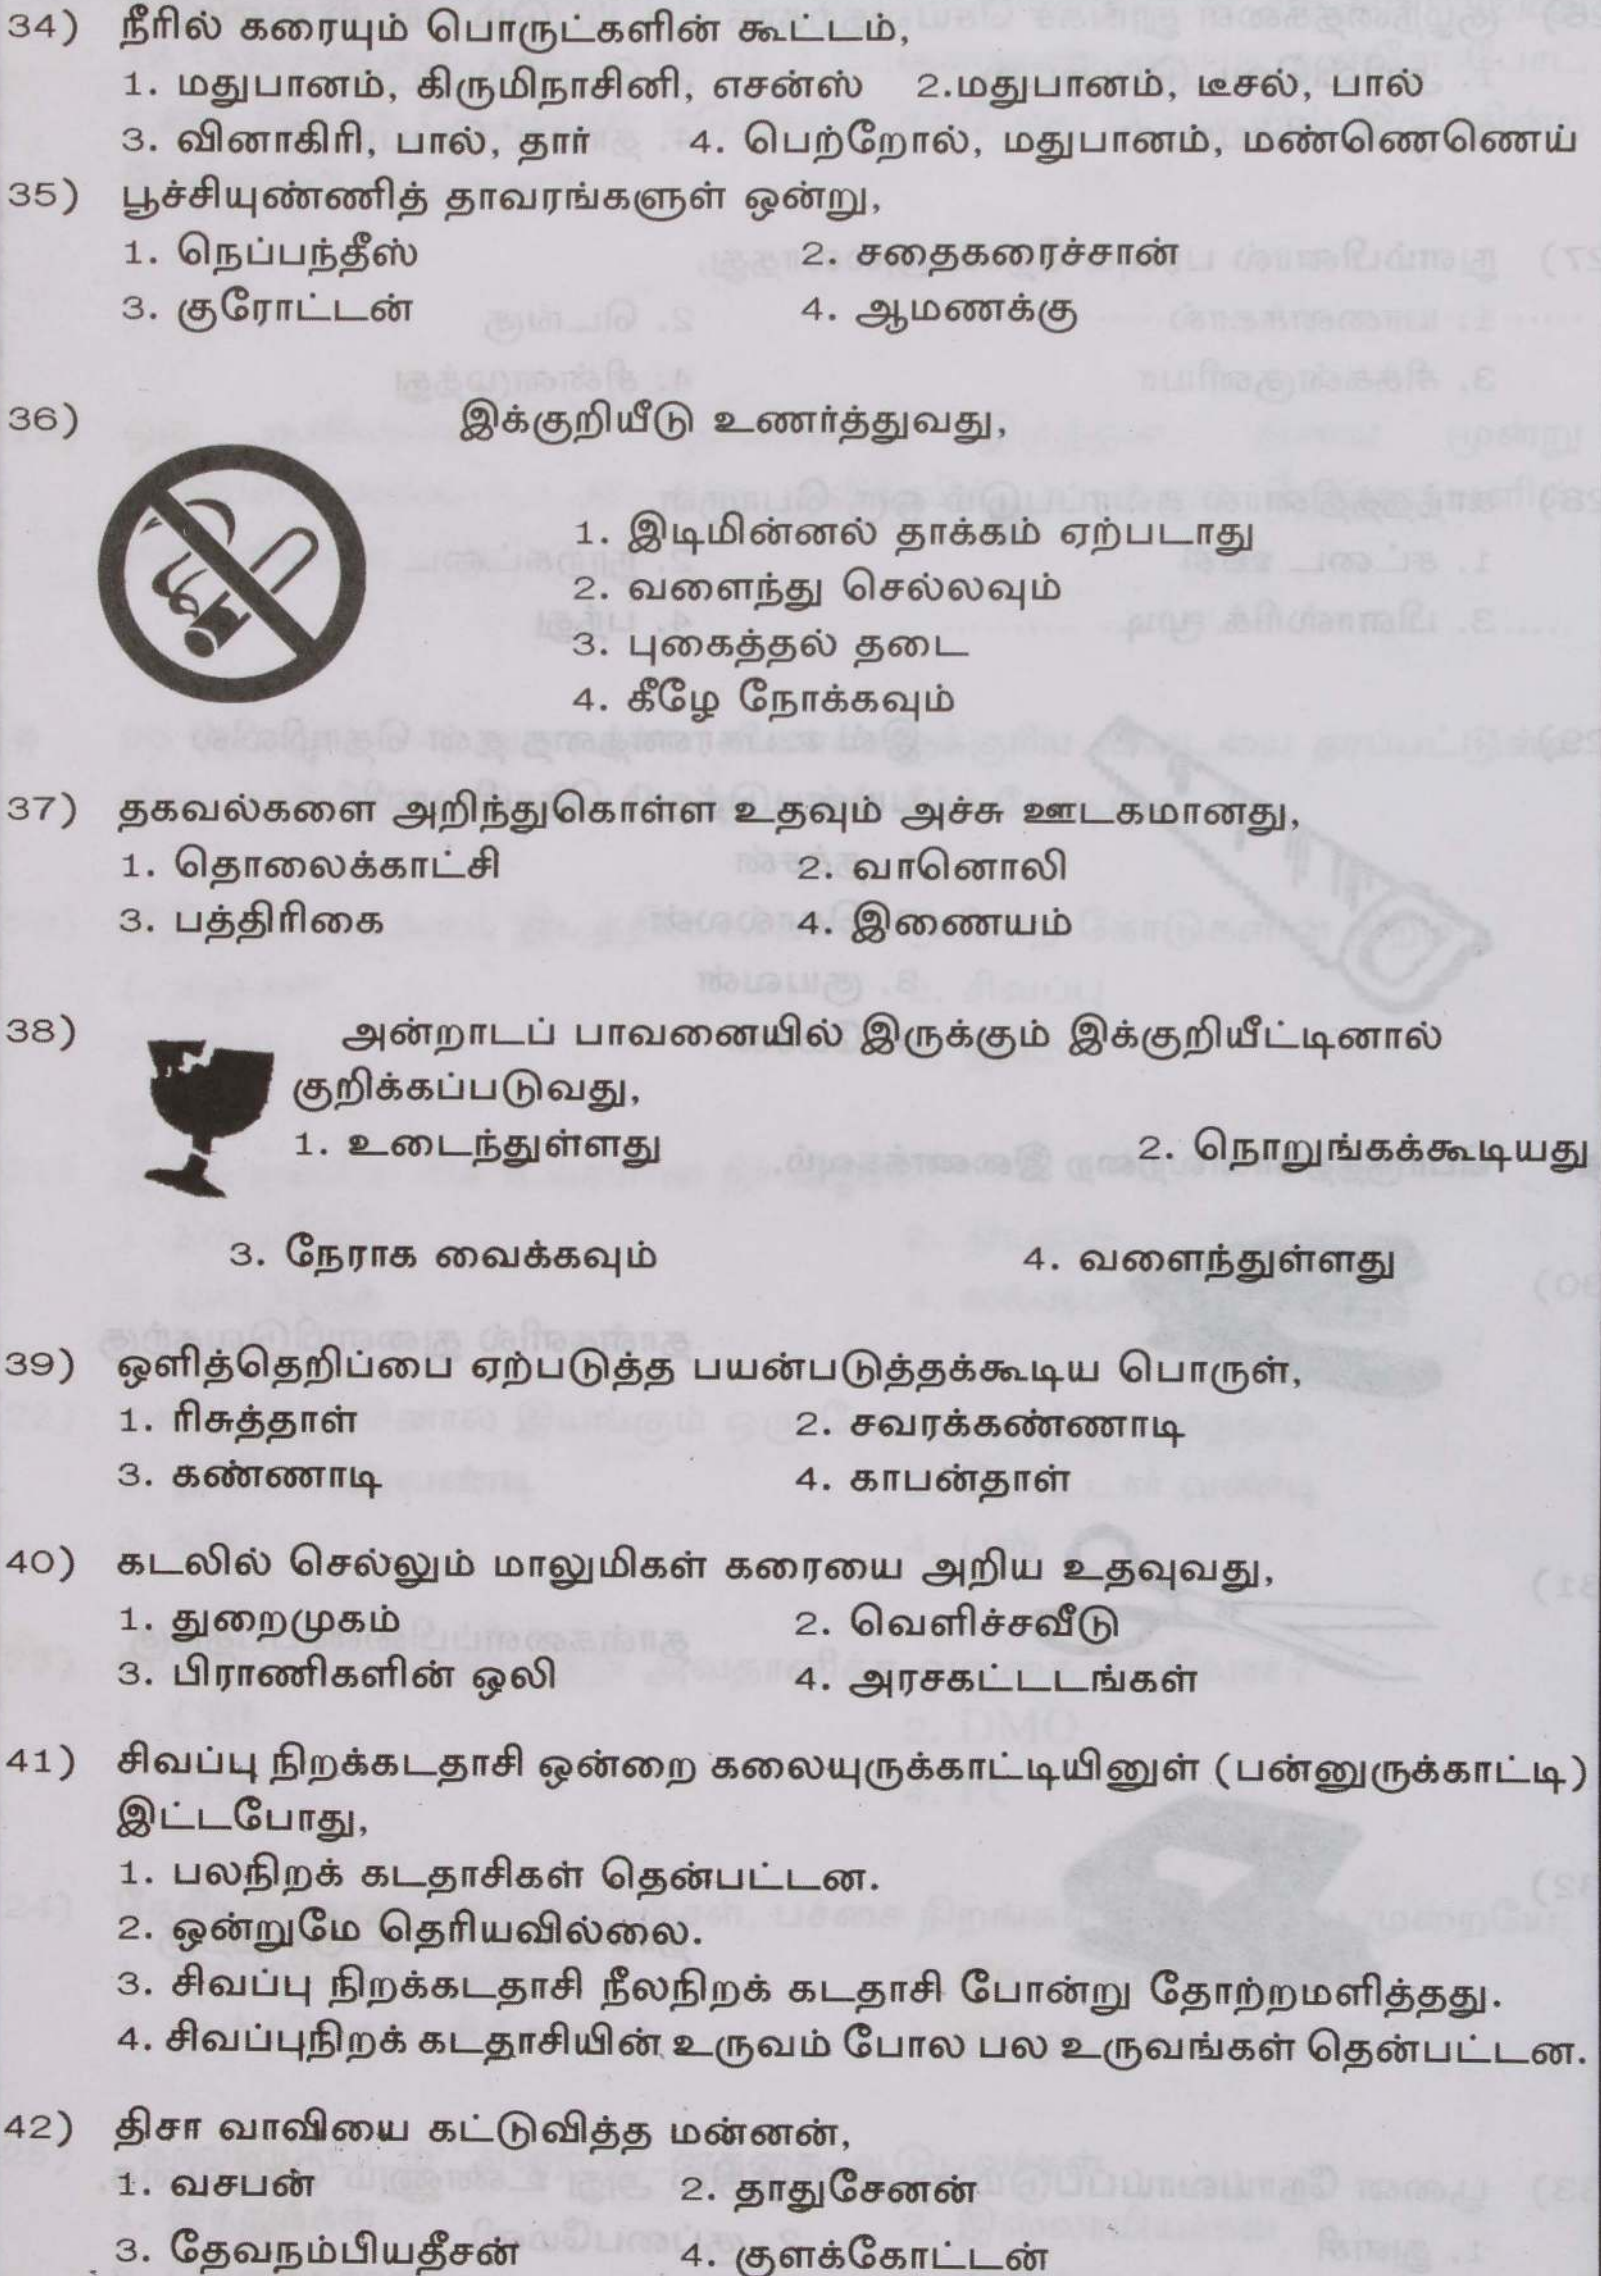 34) நீரில் கரையும் பொருட்களின் கூட்டம்,
1. மதுபானம், கிருமிநாசினி, எசன்ஸ் 2.மதுபானம், டீசல், பால்
3. வினாகிரி, பால், தார் 4. பெற்றோல், மதுபானம், மண்ணெணெய்
35) பூச்சியுண்ணித் தாவரங்களுள் ஒன்று,
1. நெப்பந்தீஸ் 2. சதைகரைச்சான்
3. குரோட்டன் 4. ஆமணக்கு
36) இக்குறியீடு உணர்த்துவது,
1. இடிமின்னல் தாக்கம் ஏற்படாது
2. வளைந்து செல்லவும்
3. புகைத்தல் தடை
4. கீழே நோக்கவும்
37) தகவல்களை அறிந்துகொள்ள உதவும் அச்சு ஊடகமானது,
1. தொலைக்காட்சி 2. வானொலி
3. பத்திரிகை 4. இணையம்
38) அன்றாடப் பாவனையில் இருக்கும் இக்குறியீட்டினால்
குறிக்கப்படுவது,
1. உடைந்துள்ளது 2. நொறுங்கக்கூடியது
3. நேராக வைக்கவும் 4. வளைந்துள்ளது
39) ஒளித்தெறிப்பை ஏற்படுத்த பயன்படுத்தக்கூடிய பொருள்,
1. ரிசுத்தாள் 2. சவரக்கண்ணாடி
3. கண்ணாடி 4. காபன்தாள்
40) கடலில் செல்லும் மாலுமிகள் கரையை அறிய உதவுவது,
1. துறைமுகம் 2. வெளிச்சவீடு
3. பிராணிகளின் ஒலி 4. அரசகட்டடங்கள்
41) சிவப்பு நிறக்கடதாசி ஒன்றை கலையுருக்காட்டியினுள் (பன்னுருக்காட்டி)
இட்டபோது,
1. பலநிறக் கடதாசிகள் தென்பட்டன.
2. ஒன்றுமே தெரியவில்லை.
3. சிவப்பு நிறக்கடதாசி நீலநிறக் கடதாசி போன்று தோற்றமளித்தது.
4. சிவப்புநிறக் கடதாசியின் உருவம் போல பல உருவங்கள் தென்பட்டன.
42) திசா வாவியை கட்டுவித்த மன்னன்,
1. வசபன் 2. தாதுசேனன்
3. தேவநம்பியதீசன் 4. குளக்கோட்டன்